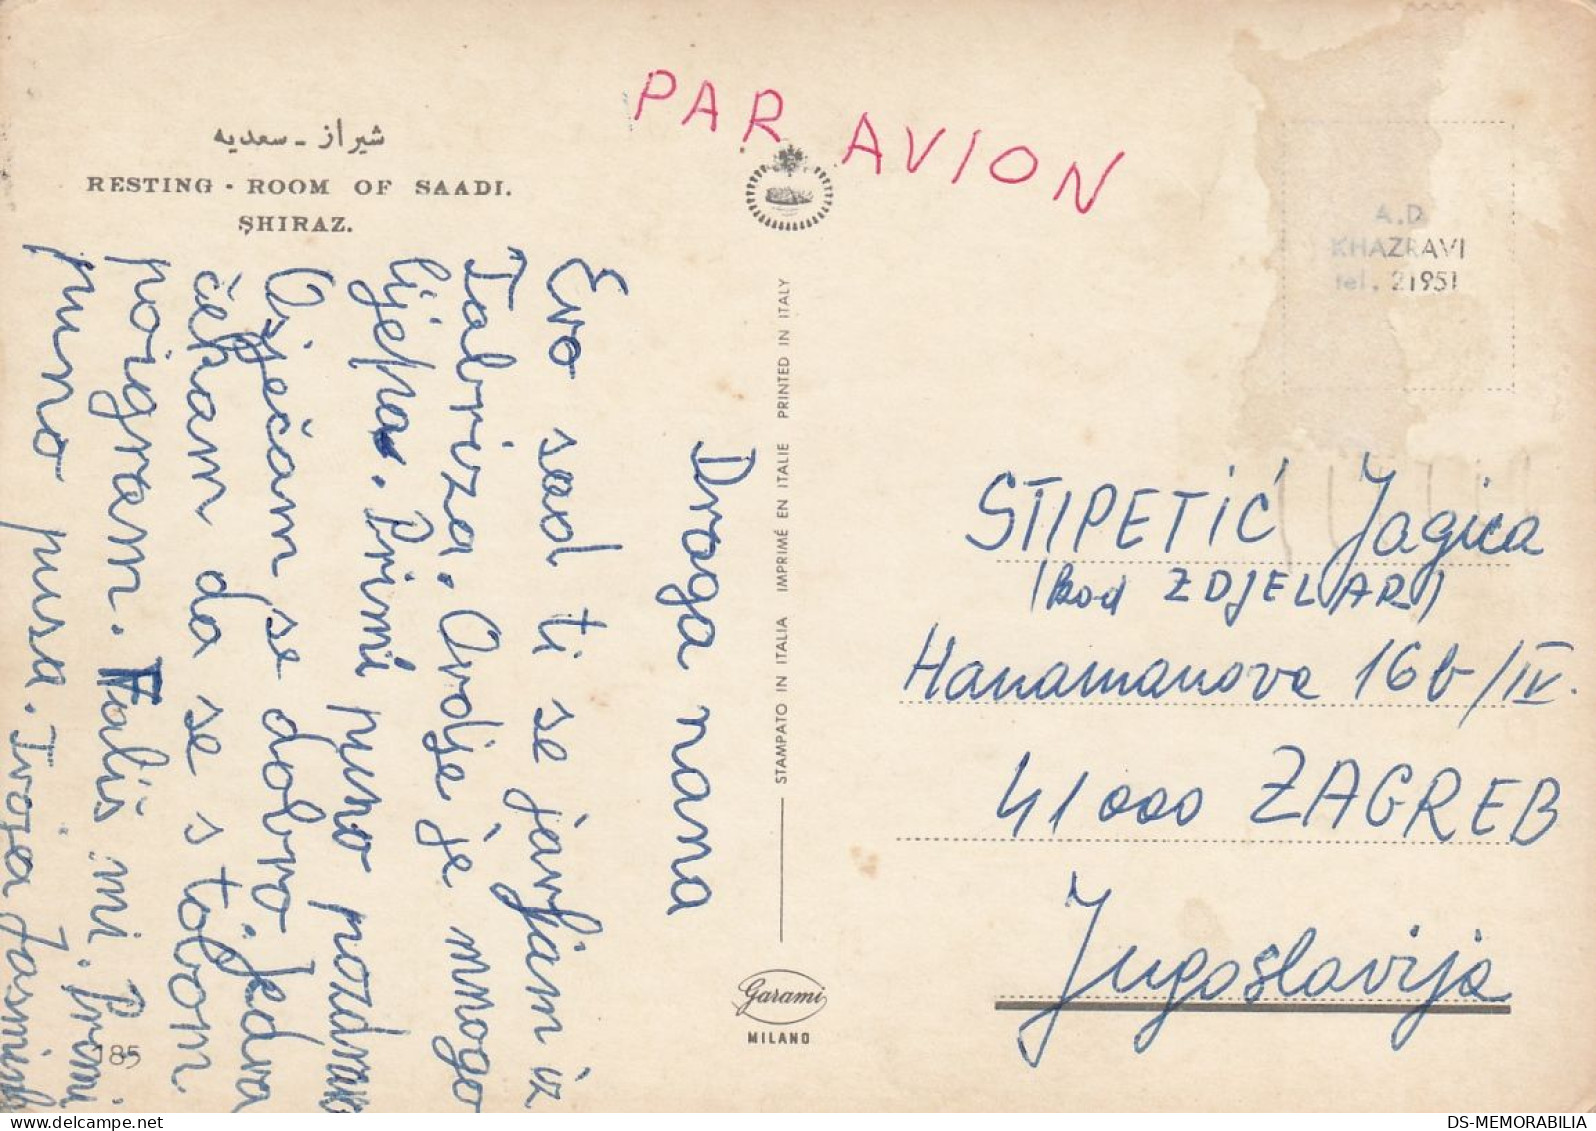 شیراز - سعدیه
RESTING - ROOM OF SAADI.
SHIRAZ.
PAR AVION
A.D.
KHAZRAVI
tel. 21951
Draga nana
Evo sad ti se javljam iz
Tabriza. Ovdje je mnogo
lijepo. Primi puno pozdrava
Osječam se dobro. Jedva
čekam da se s tobom
poigram. Fališ mi. Primi
puno pusa. Tvoja
185
STAMPATO IN ITALIA IMPRIMÉ EN ITALIE PRINTED IN ITALY
Garami
MILANO
STIPETIĆ Jagica
(kod ZDJELAR)
Hanamanova 16b/IV.
41000 ZAGREB
Jugoslavija
DS-MEMORABILIA